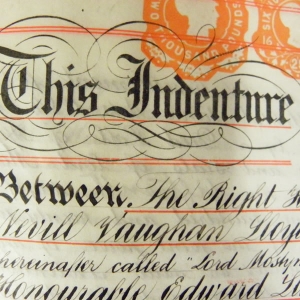 THOUSAND
This Indenture
Between The Right
Nevill Vaughan Lloyd
hereinafter called "Lord Mostyn
Honourable Edward